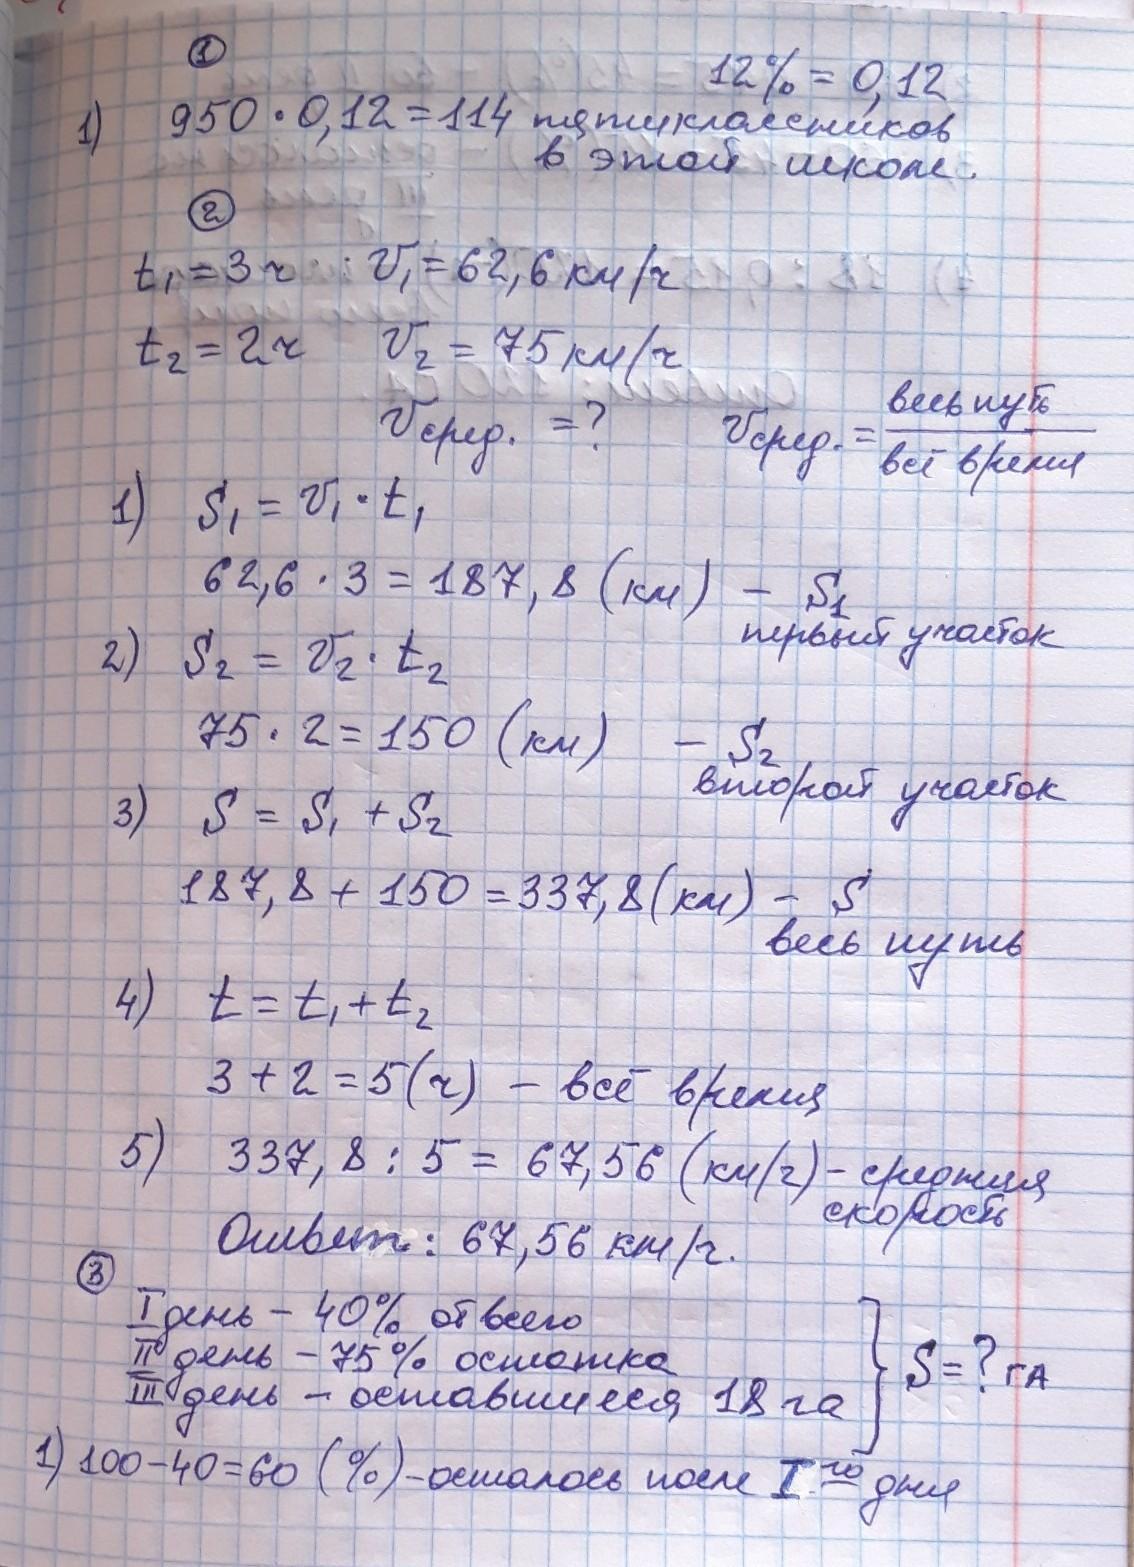 1
12% = 0,12
1) 950 · 0,12 = 114 пятиклассников
в этой школе.
2
t₁ = 3 ч V₁ = 62,6 км/ч
t₂ = 2 ч V₂ = 75 км/ч
Vсред. = ? Vсред. = весь путь / всё время
1) S₁ = V₁ · t₁
62,6 · 3 = 187,8 (км) – S₁
первый участок
2) S₂ = V₂ · t₂
75 · 2 = 150 (км) – S₂
второй участок
3) S = S₁ + S₂
187,8 + 150 = 337,8 (км) – S
весь путь
4) t = t₁ + t₂
3 + 2 = 5 (ч) – всё время
5) 337,8 : 5 = 67,56 (км/ч) – средняя
скорость
Ответ: 67,56 км/ч.
3
I день – 40% от всего
II день – 75% остатка
III день – оставшиеся 18 га } S = ? га
1) 100 – 40 = 60 (%) – осталось после I го дня